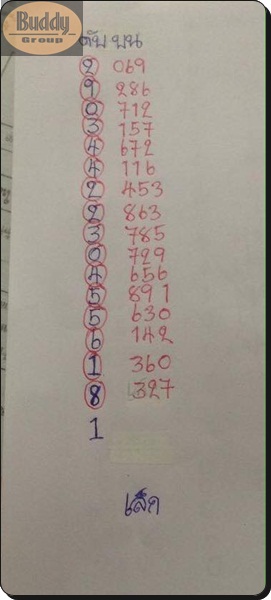 Buddy
Group
ดับ บน
2 069
9 286
0 712
3 157
4 672
4 116
2 453
2 863
3 785
0 729
4 656
5 891
5 630
6 142
1 360
8 327
1
เล็ก